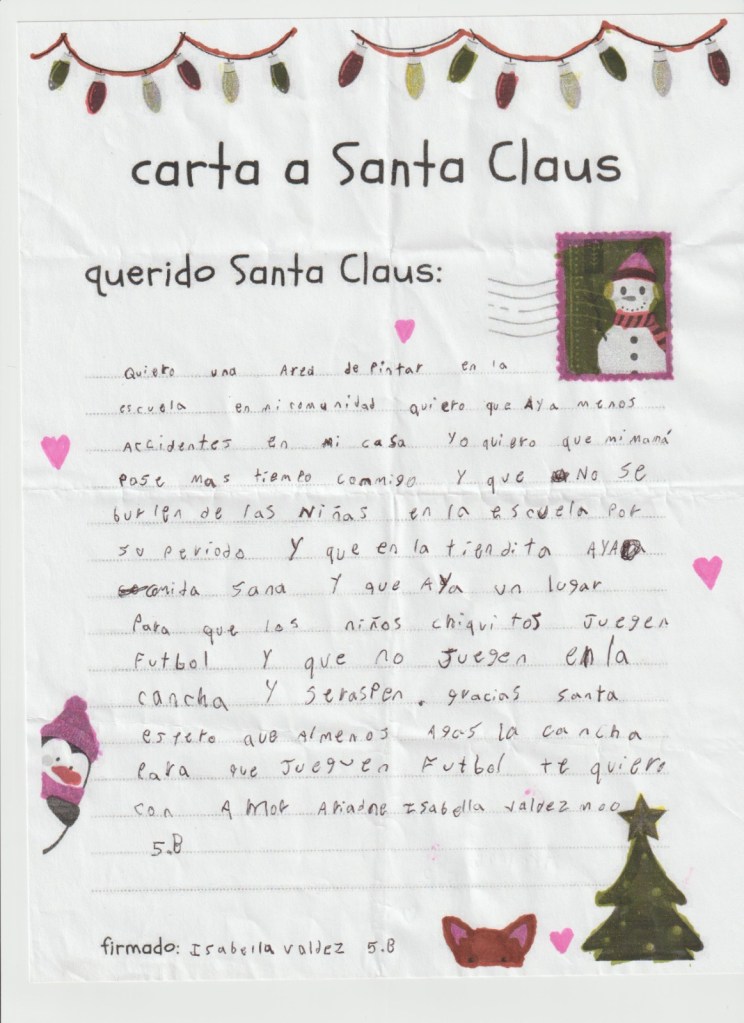 carta a Santa Claus
querido Santa Claus:
Quiero una Area de Pintar en la
escuela en mi comunidad quiero que Aya menos
Accidentes en mi casa Yo quiero que mi mamá
Pase mas tiempo commigo Y que No se
burlen de las Niñas en la escuela Por
su periodo Y que en la tiendita AYA
comida sana Y que AYa un lugar
Para que los niños chiquitos Juegen
Futbol Y que no Juegen en la
cancha Y seraspen. gracias santa
espero que Almenos Agas la cancha
Para que Jueguen Futbol te quiero
con Amor Ariadne Isabella valdez
5.B
firmado: Isabella valdez 5.B